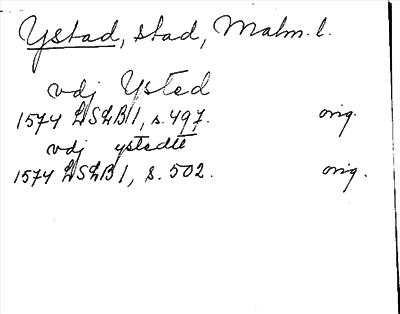 Ystad, stad, Malm. l.
vdj Ysted
1574 LSLB 1, s. 497. orig.
vdj ystedtt
1574 LSLB 1, s. 502. orig.